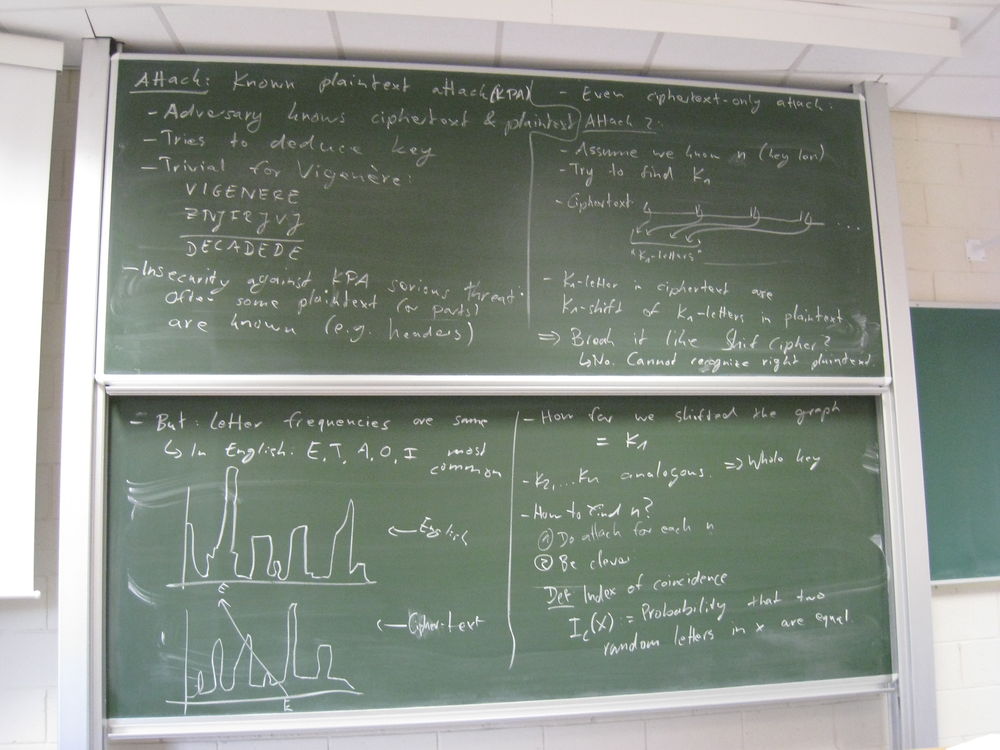 Attack: Known plaintext attack (KPA)
- Adversary knows ciphertext & plaintext
- Tries to deduce key
- Trivial for Vigenère:
VIGENERE
ZNJFRJVJ
DECADEDE
- Insecurity against KPA serious threat.
Often some plaintext (or parts)
are known (e.g. headers)
- Even ciphertext-only attack:
Attack 2:
- Assume we know n (key len)
- Try to find K1
- Ciphertext
...
"K1-letters"
- K1-letter in ciphertext are
K1-shift of K1-letters in plaintext
⇒ Break it like Shift Cipher?
↳ No. Cannot recognize right plaintext
- But: Letter frequencies are same
↳ In English: E, T, A, O, I most
common
← English
E
← Cipher-text
E
- How far we shifted the graph
= K1
- K2,...Kn analogous. ⇒ Whole key
- How to find n?
① Do attack for each n
② Be clever
Def Index of coincidence
Ic(X) := Probability that two
random letters in x are equal